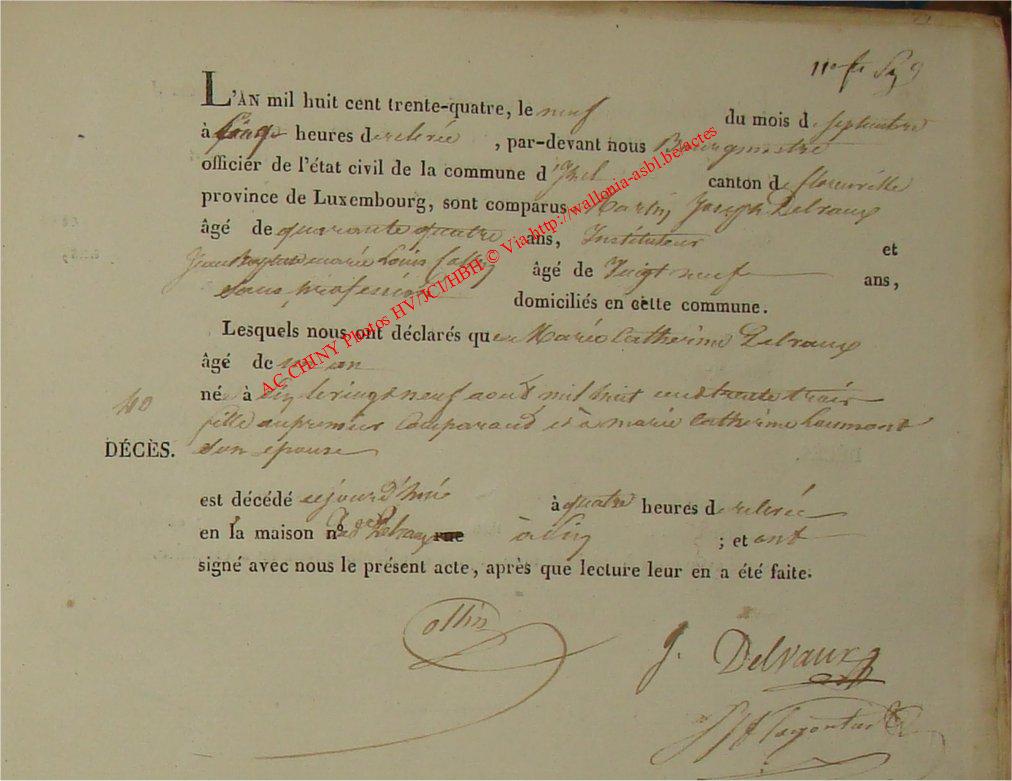 L'AN mil huit cent trente-quatre, le neuf du mois de septembre
à cinq heures de relevée, par-devant nous Bourgmestre
officier de l'état civil de la commune d'Izel canton de florenville
province de Luxembourg, sont comparus Martin Joseph Delvaux
âgé de quarante quatre ans, Instituteur et
Jean Baptiste marie Louis Collin âgé de Vingt neuf ans,
Sans profession domiciliés en cette commune.
Lesquels nous ont déclarés que Marie Catherine Delvaux
âgé de un an
né à le vingt neuf aout mil huit cent trente trois
40
fille du premier Comparant et à marie Catherine Laumont
DÉCÈS. son epouse
est décédé cejourd'hui à quatre heures de relevée
en la maison n° de Delvaux rue à ; et ont
signé avec nous le présent acte, après que lecture leur en a été faite.
Collin
J. Delvaux
AC CHINY Photos HV/JCl/HBH © Via http://wallonia-asbl.be/actes